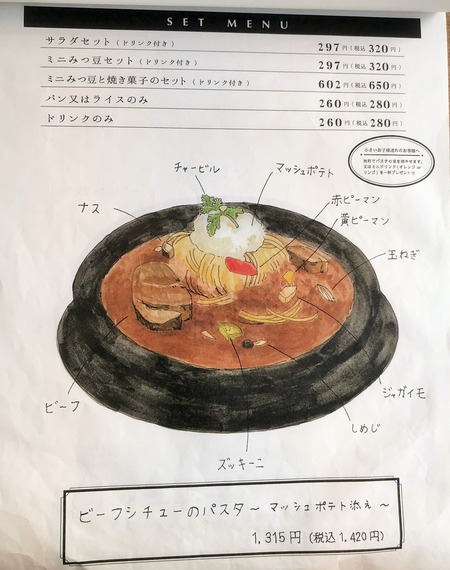 SET MENU
サラダセット(ドリンク付き) 297円(税込320円)
ミニみつ豆セット(ドリンク付き) 297円(税込320円)
ミニみつ豆と焼き菓子のセット(ドリンク付き) 602円(税込650円)
パン又はライスのみ 260円(税込280円)
ドリンクのみ 260円(税込280円)
小さいお子様連れのお客様へ
無料でパスタの量を増やせます。
又はミニドリンク(オレンジor
リンゴ)を一杯プレゼント!!
チャービル
マッシュポテト
赤ピーマン
ナス
黄ピーマン
玉ねぎ
ビーフ
ジャガイモ
しめじ
ズッキーニ
ビーフシチューのパスタ～マッシュポテト添え～
1,315円(税込1,420円)